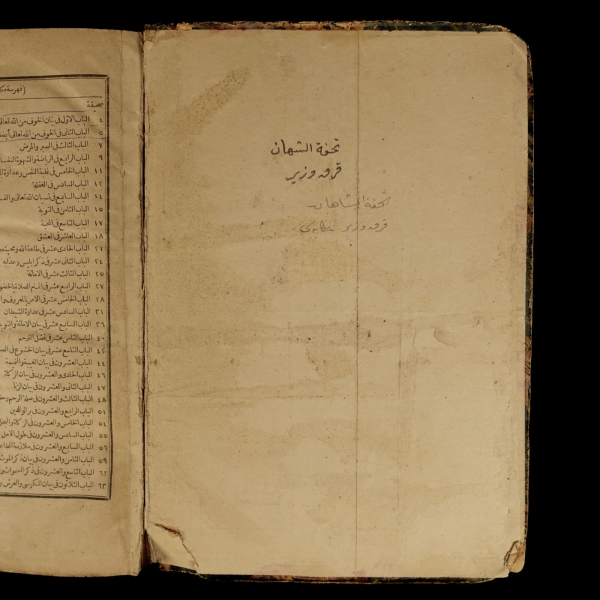 تحفة الشهان
قرق وزير
تحفة الشاهان
قرق وزير
صحيفة
٤ الباب الاول في بيان الخوف من الله تعالى
٥ الباب الثاني في الخوف من الله تعالى أيضا
٧ الباب الثالث في الصبر والمرض
٩ الباب الرابع في الرياضة والشهوة النفسانية
١١ الباب الخامس في غلبة النفس وعداوة
١٢ الباب السادس في الغفلة
١٤ الباب السابع في نسيان الله تعالى والفسق
١٥ الباب الثامن في التوبة
١٧ الباب التاسع في المحبة
١٨ الباب العاشر في العشق
٢١ الباب الحادي عشر في طاعة الله ومحبة
٢٤ الباب الثاني عشر في ذكر ابليس وعذابه
٢٥ الباب الثالث عشر في الامانة
٢٧ الباب الرابع عشر في اتمام الصلاة
٢٨ الباب الخامس عشر في الامر بالمعروف
٣١ الباب السادس عشر في عداوة الشيطان
٣٦ الباب السابع عشر في بيان الامانة والتوبة
٤٠ الباب الثامن عشر في فضل الترحم
٤٢ الباب التاسع عشر في بيان الخشوع في
٤٤ الباب العشرون في بيان الغيبة والنميمة
٤٦ الباب الحادي والعشرون في بيان الزكاة
٤٧ الباب الثاني والعشرون في بيان الزنا
٤٨ الباب الثالث والعشرون في صلة الرحم
٥١ الباب الرابع والعشرون في بر الوالدين
٥٤ الباب الخامس والعشرون في الزكاة والبخل
٥٥ الباب السادس والعشرون في طول الامل
٥٦ الباب السابع والعشرون في ملازمة الطاعة
٥٩ الباب الثامن والعشرون في بيان ذكر الموت
٦٢ الباب التاسع والعشرون في ذكر السموات
٦٣ الباب الثلاثون في بيان الكرسي والعرش